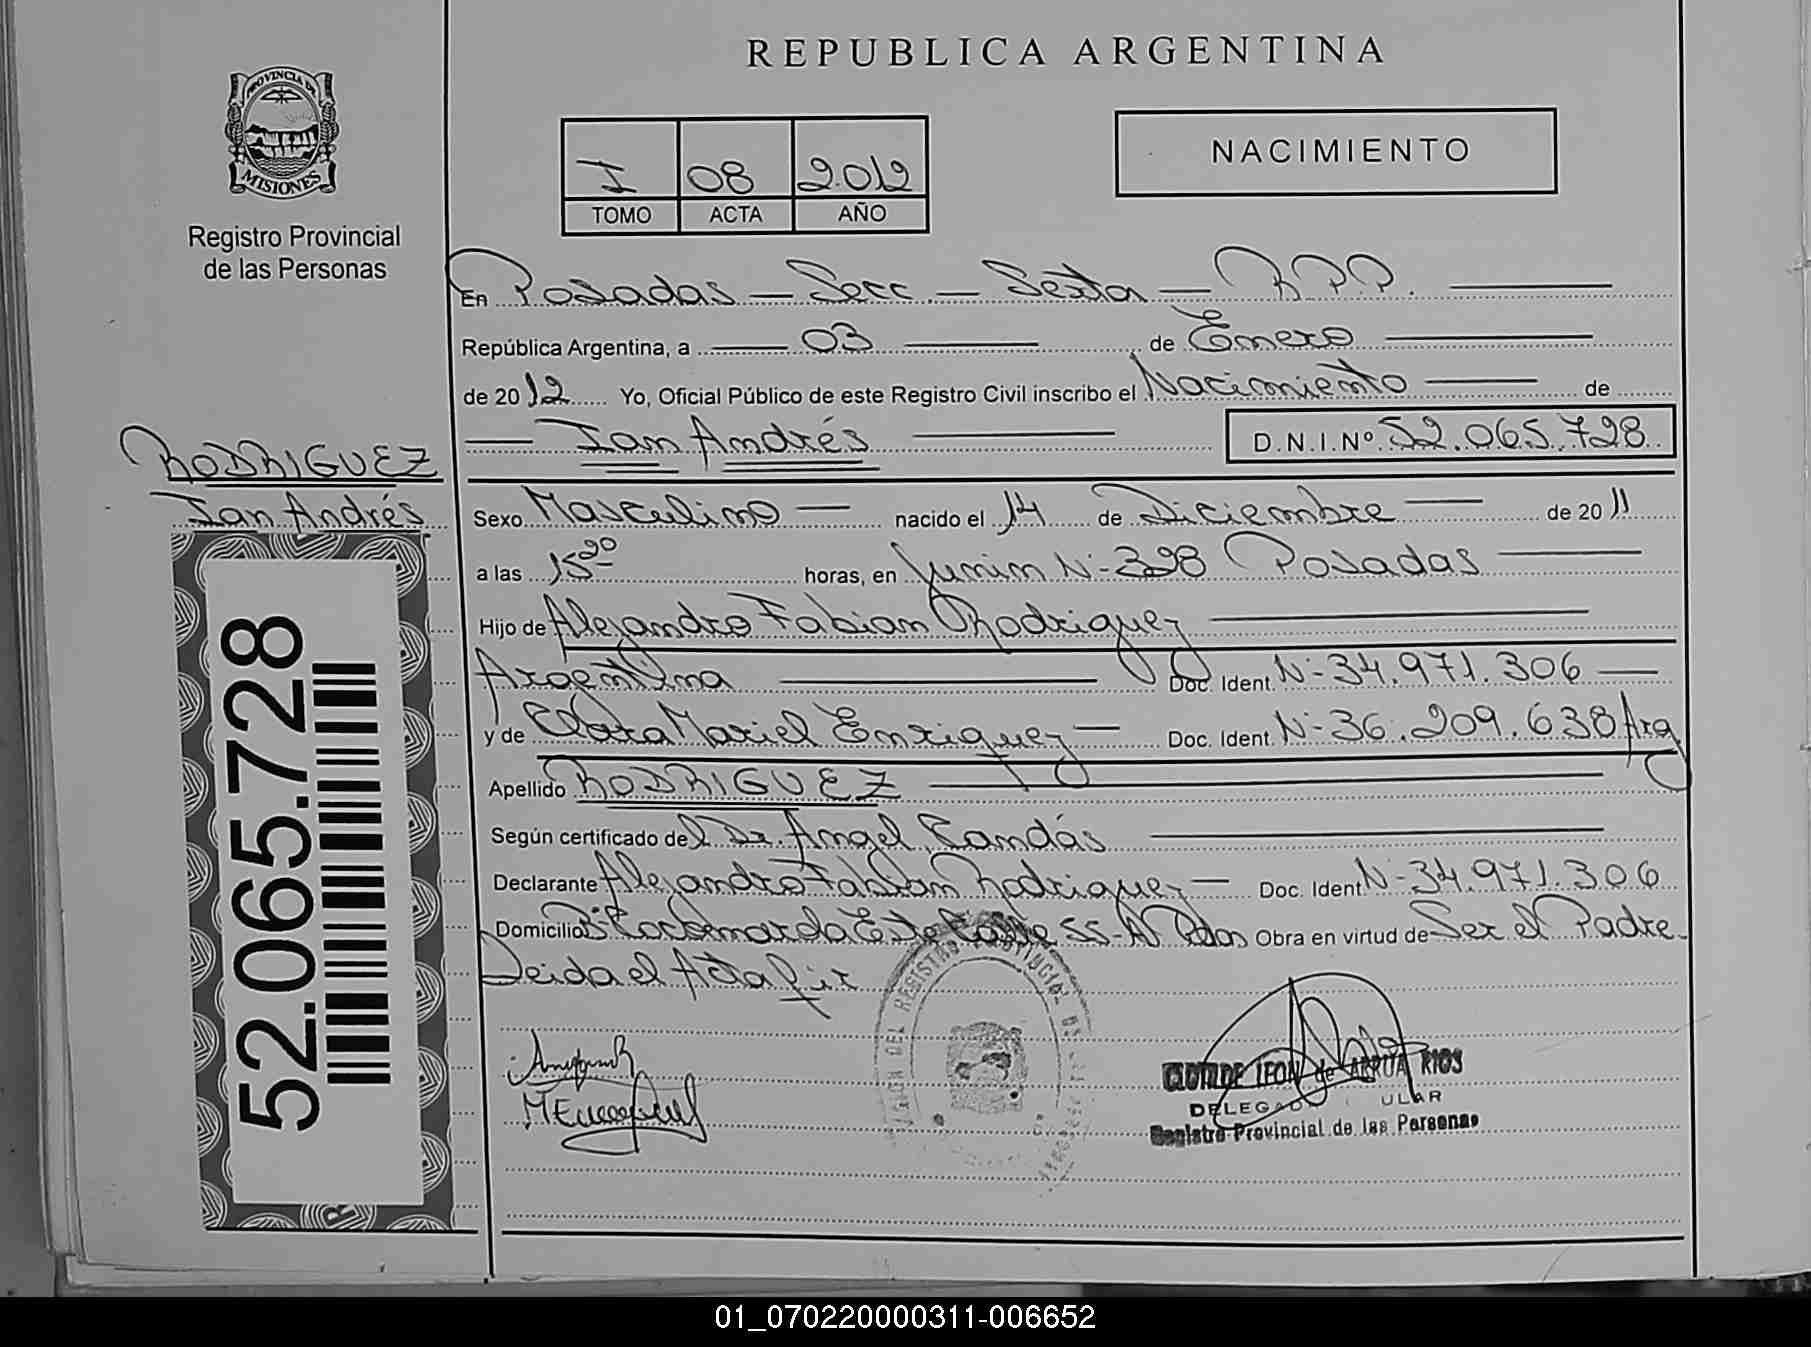 REPUBLICA ARGENTINA
PROVINCIA DE
MISIONES
Registro Provincial
de las Personas
I 08 2.012
TOMO ACTA AÑO
NACIMIENTO
En Posadas — Secc. — Sexta — R.P.P.
República Argentina, a 03 de Enero
de 20 12 Yo, Oficial Público de este Registro Civil inscribo el Nacimiento de
Ian Andrés D.N.I.Nº 52.065.728
RODRIGUEZ
Ian Andrés
52.065.728
Sexo Masculino nacido el 14 de Diciembre de 20 11
a las 15 20 horas, en Junin Nº 328 Posadas
Hijo de Alejandro Fabian Rodriguez
Argentina Doc. Ident. Nº 34.971.306
y de Clara Mariel Enriquez Doc. Ident. Nº 36.209.638 Arg
Apellido RODRIGUEZ
Según certificado del Dr. Angel
Declarante Alejandro Fabian Rodriguez Doc. Ident. Nº 34.971.306
Domicilio Este Calle Obra en virtud de Ser el Padre
Leida el Acta
CLOTILDE LEON de ARRUA RIOS
Registro Provincial de las Personas
01_070220000311-006652